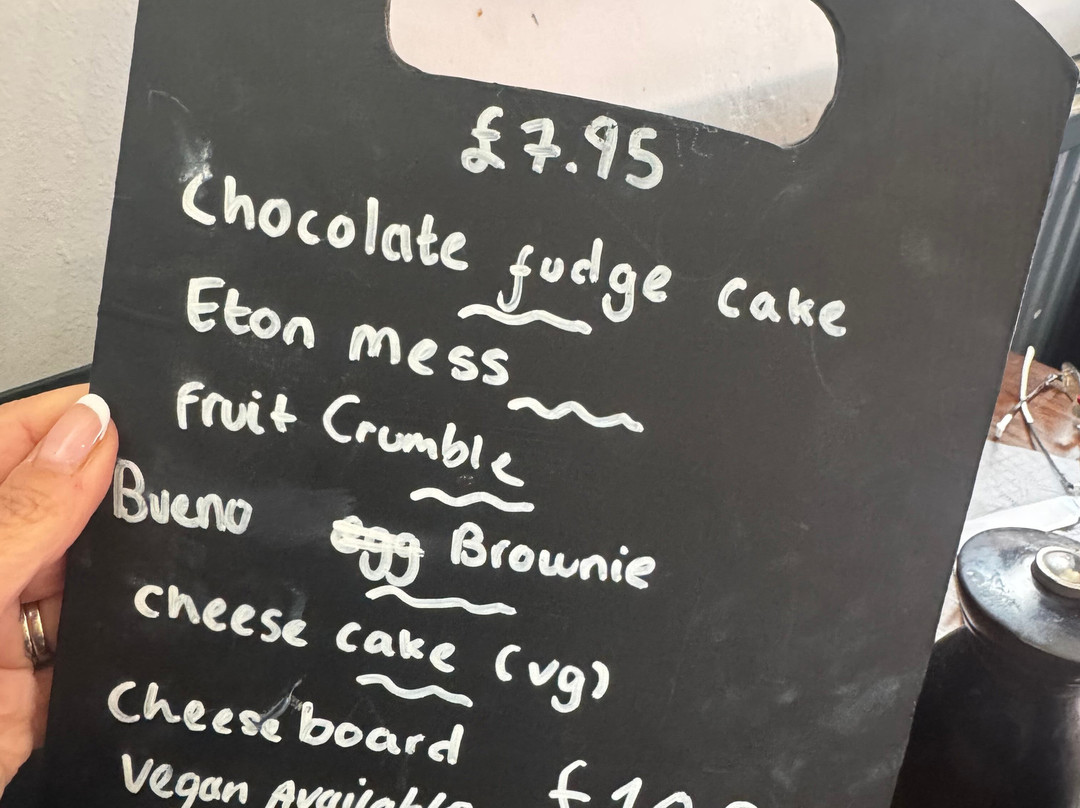 £7.95
Chocolate fudge cake
Eton mess
Fruit Crumble
Bueno egg Brownie
cheese cake (vg)
Cheese board
Vegan Available